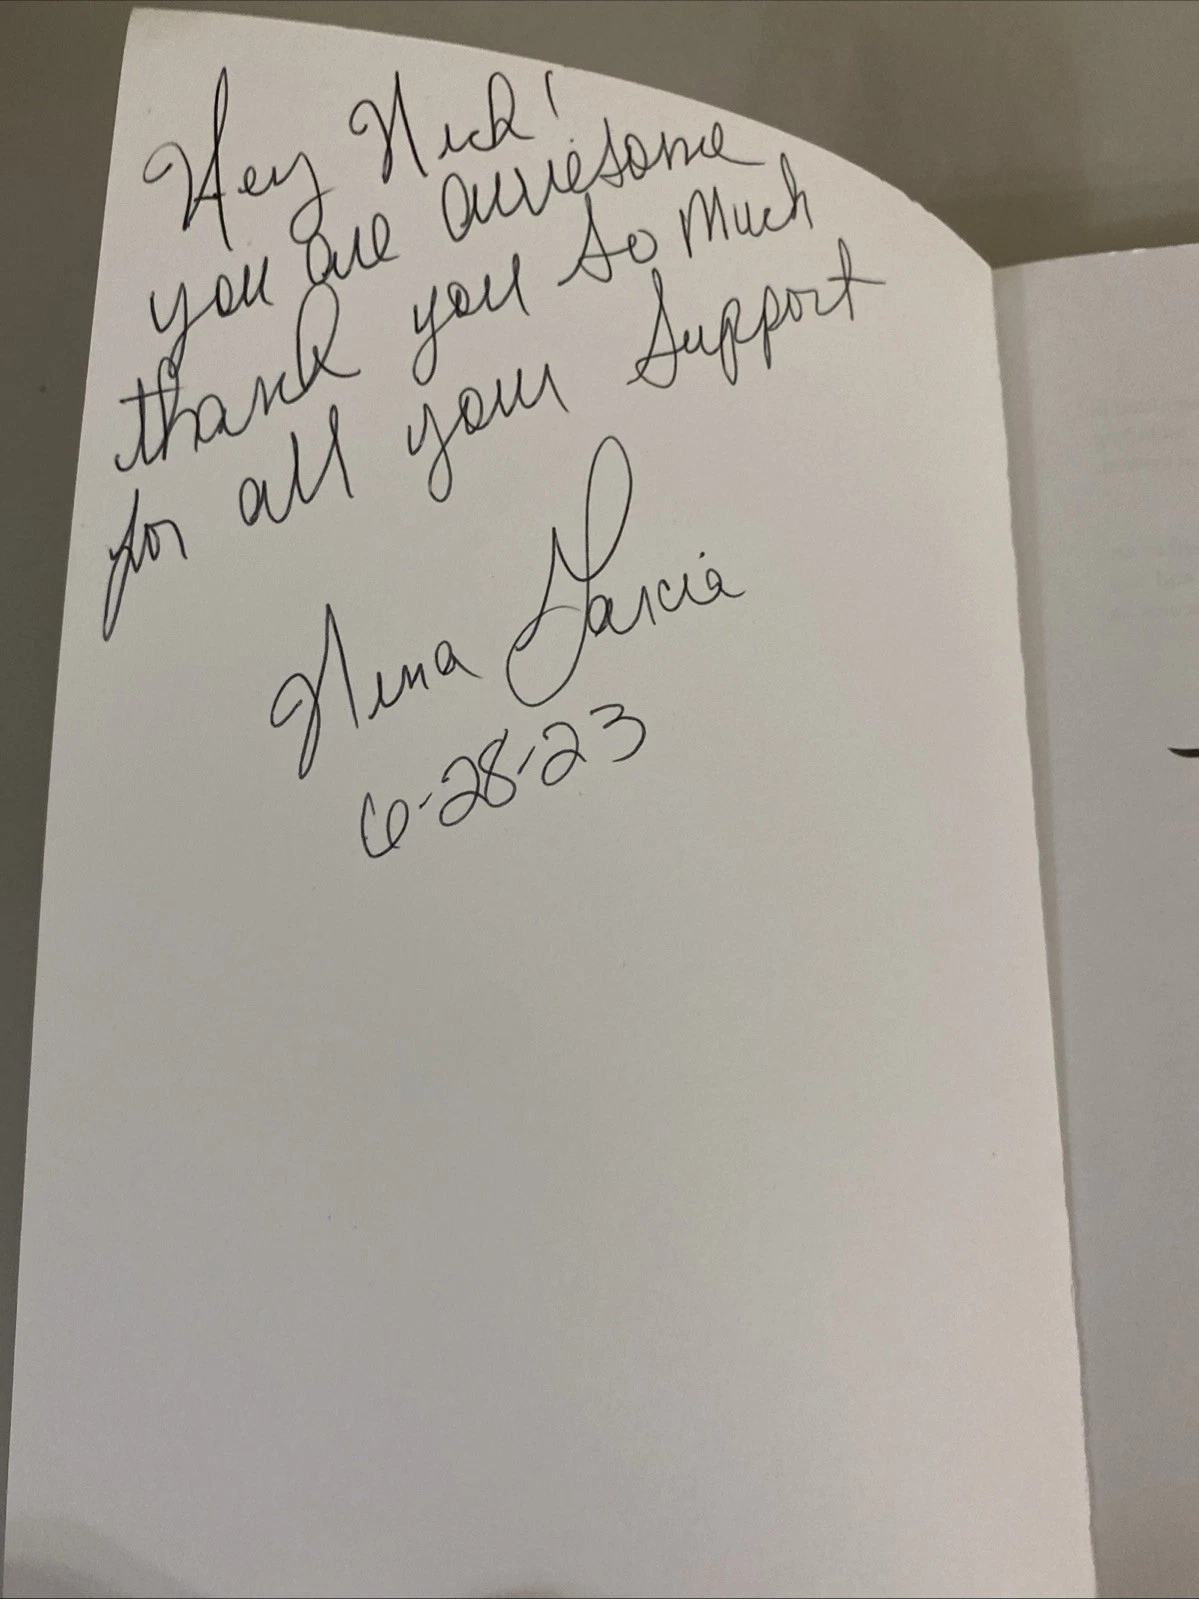 Hey Nick!
you are awesome
thank you so Much
for all your Support
Nina Garcia
6-28-23